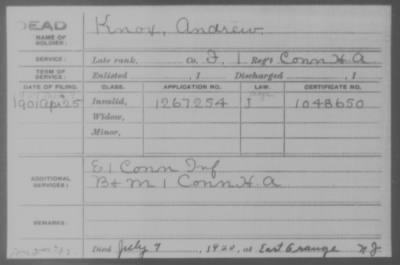 DEAD
NAME OF SOLDIER: Knox, Andrew
SERVICE: Late rank, Co. F, 1 Reg't Conn H A
TERM OF SERVICE: Enlisted , 1 Discharged , 1
DATE OF FILING. CLASS. APPLICATION NO. LAW. CERTIFICATE NO.
1901 Apr 25 Invalid, 1267254 I 1048650
Widow,
Minor,
ADDITIONAL SERVICES: E 1 Conn Inf
B & M 1 Conn H. A
REMARKS:
Died July 7, 1920, at East Orange N J